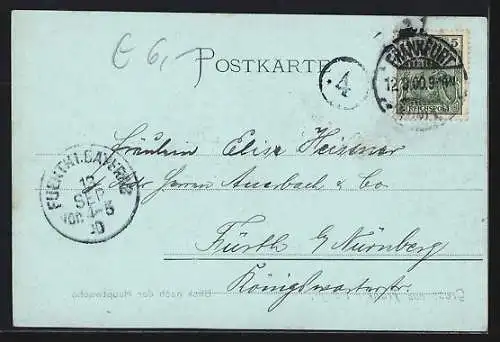 € 6,-
POSTKARTE
4
5
FRANKFURT
12.9.00.9-10
REICHSPOST
Fräulein Elise
Adr Herren Auerbach & Co.
Fürth b/ Nürnberg
Königswarterstr.
FUERTH I. BAYERN
12
SEP
VOR 4-5
00
Blick nach der Hauptwache